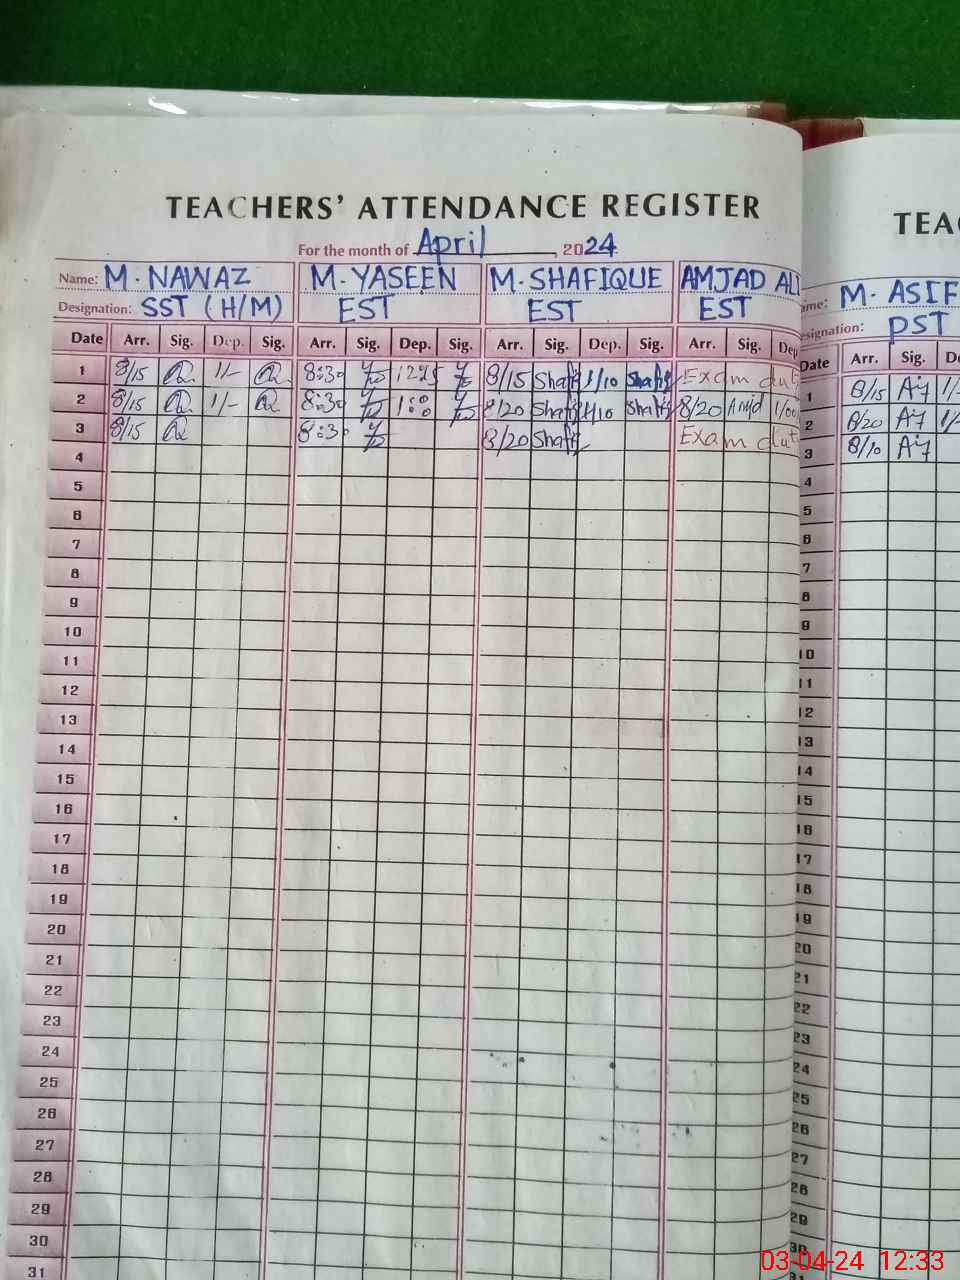 TEACHERS' ATTENDANCE REGISTER
For the month of April, 2024
Name: M. NAWAZ M. YASEEN M. SHAFIQUE AMJAD ALI
Designation: SST (H/M) EST EST EST
Date Arr. Sig. Dep. Sig. Arr. Sig. Dep. Sig. Arr. Sig. Dep. Sig. Arr. Sig. Dep
1 8/15 1/- 8:30 8/15 Shafiq 1/10 Shafiq Exam
2 8/15 1/- 8:30 1:00 8/20 Shafiq 1/10 Shafiq 8/20 Amjd 1/00
3 8/15 8:30 8/20 Shafiq Exam
4
5
6
7
8
9
10
11
12
13
14
15
16
17
18
19
20
21
22
23
24
25
26
27
28
29
30
31
TEAC
ame: M. ASIF
esignation: PST
Date Arr. Sig. De
1 8/15 1/-
2 8/20
3 8/10
4
5
6
7
8
9
10
11
12
13
14
15
16
17
18
19
20
21
22
23
24
25
26
27
28
29
30
03-04-24 12:33